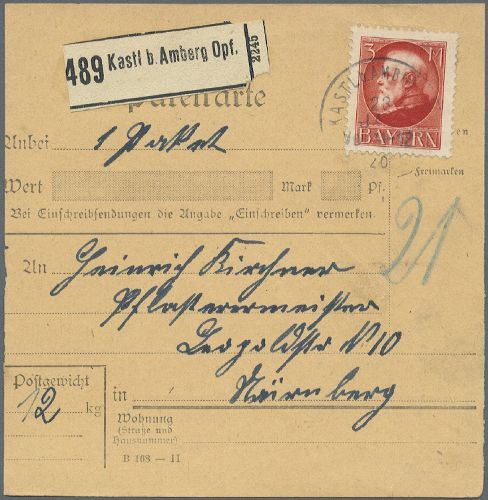 489 Kastl b. Amberg Opf. 2245
3 M
BAYERN
KASTL
20
Paketkarte
Anbei 1 Paket
Wert Mark Pf.
Freimarken
Bei Einschreibsendungen die Angabe „Einschreiben" vermerken.
21
An Heinrich Kirchner
Pflasterermeister
Leopoldstr N 10
in Nürnberg
Postgewicht
12 kg
Wohnung
(Straße und
Hausnummer)
B 168 — II